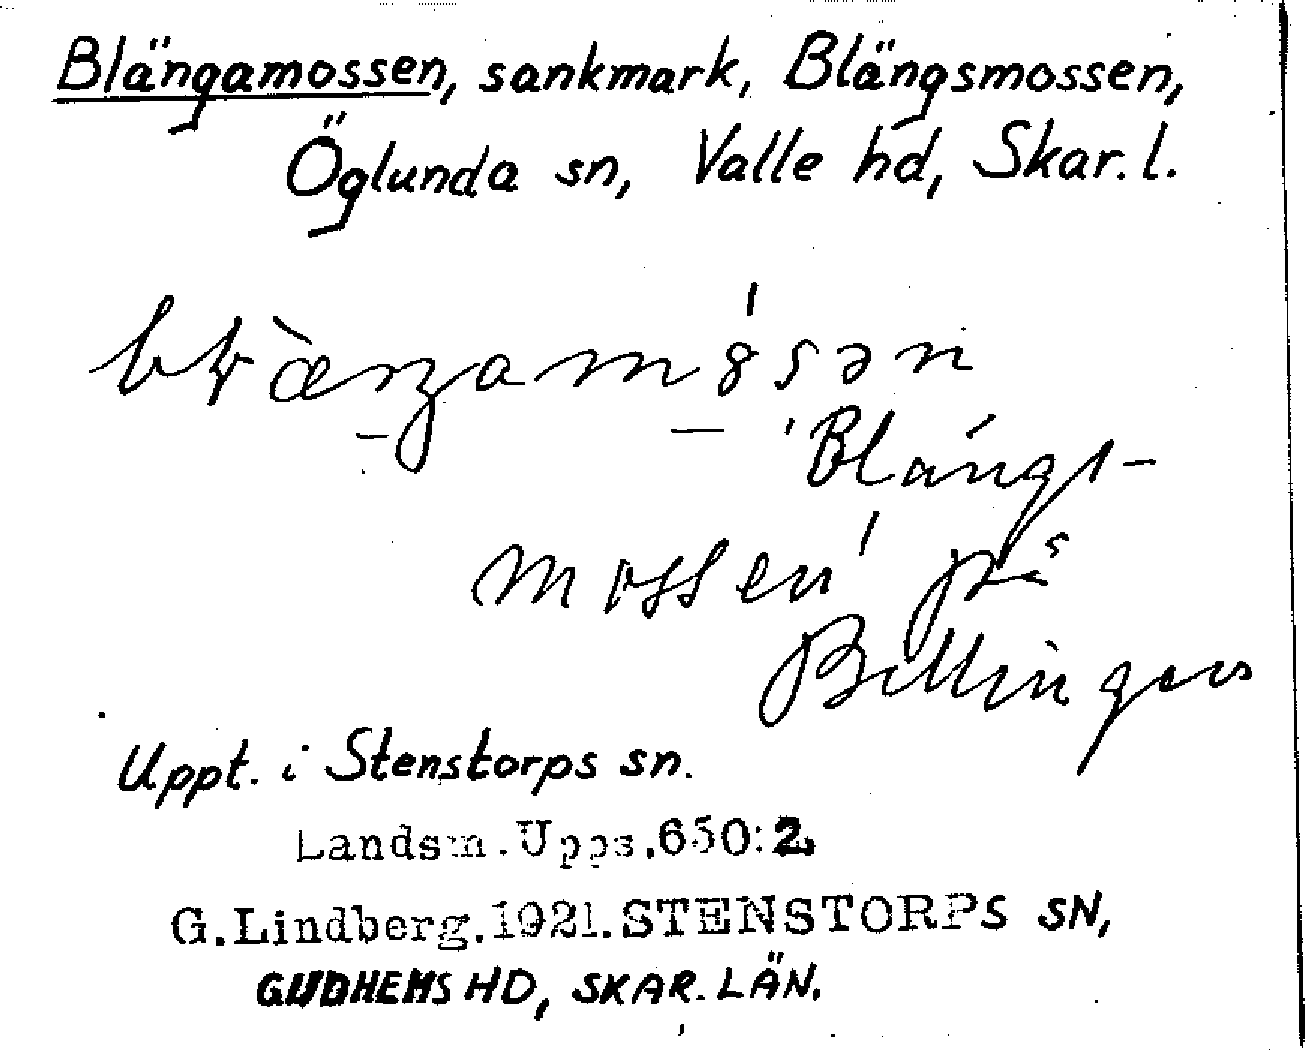 Blängamossen, sankmark, Blängsmossen,
Öglunda sn, Valle hd, Skar. l.
'Blängs-
mossen' på
Billingen
Uppt. i Stenstorps sn.
Landsm. Upps. 650:2,
G. Lindberg. 1921. STENSTORPS SN,
GUDHEMS HD, SKAR. LÄN.